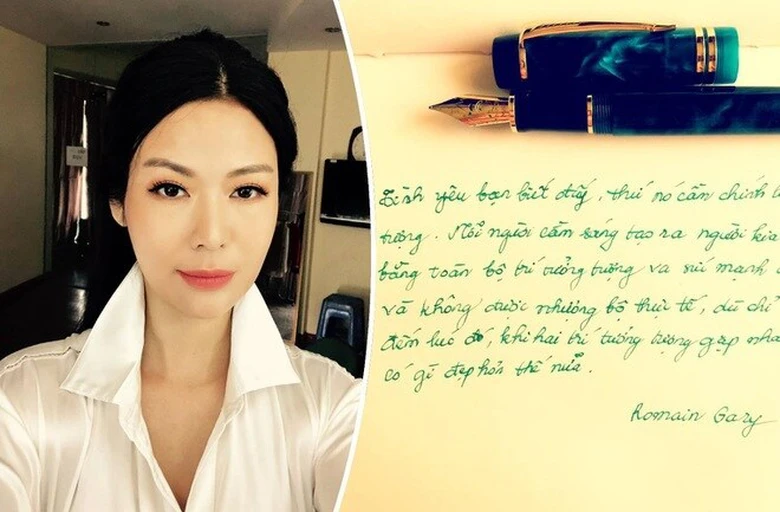 Tình yêu bạn biết đấy, thứ nó cần chính là
tượng. Mỗi người cần sáng tạo ra người kia
bằng toàn bộ trí tưởng tượng và sức mạnh
và không được nhượng bộ thực tế, dù chỉ
đến lúc đó, khi hai trí tưởng tượng gặp nha
có gì đẹp hơn thế nữa.
Romain Gary